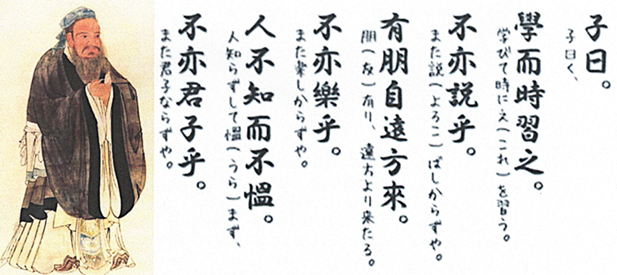 子曰。
子曰く、
學而時習之。
学びて時に之(これ)を習う。
不亦説乎。
また説(よろこ)ばしからずや。
有朋自遠方來。
朋(友)有り、遠方より来たる。
不亦樂乎。
また楽しからずや。
人不知而不慍。
人知らずして慍(うら)まず、
不亦君子乎。
また君子ならずや。